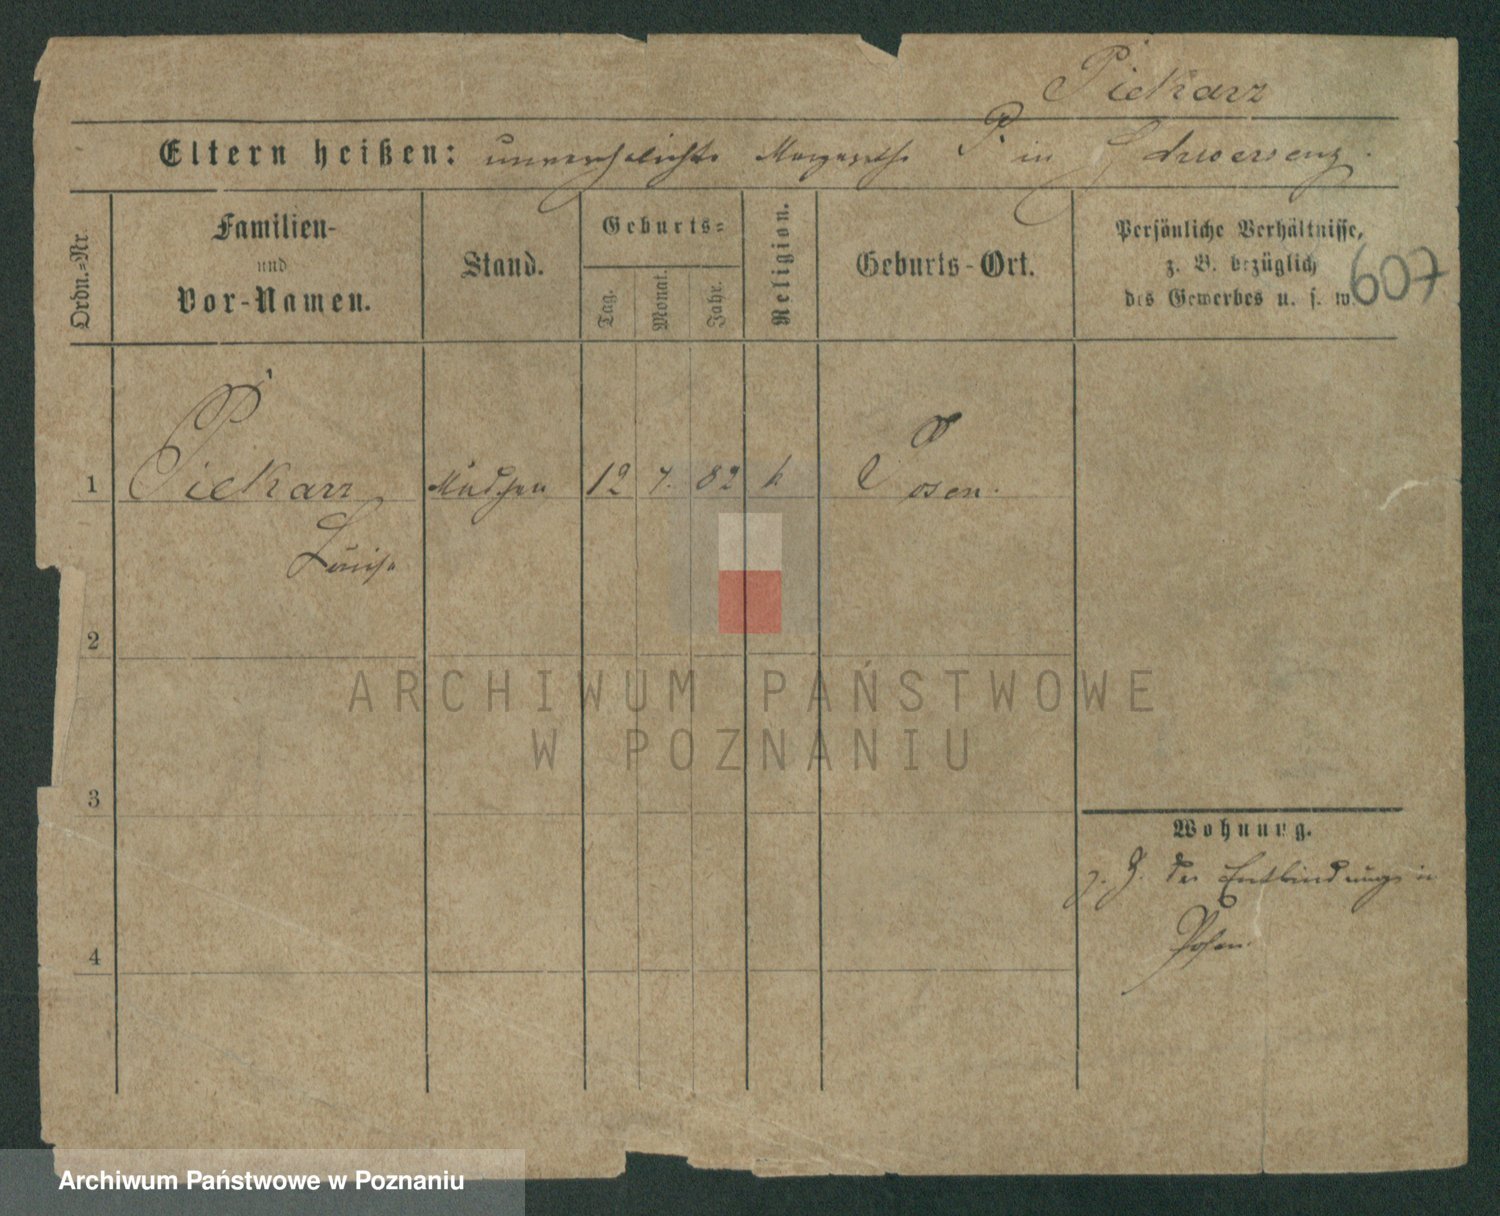 Piekarz
Eltern heißen: unverehelichte Margarethe P. in Schwersenz.
Ordn.-Nr.
Familien-
und
Vor-Namen.
Stand.
Geburts-
Tag.
Monat.
Jahr.
Religion.
Geburts-Ort.
Persönliche Verhältnisse,
z. B. bezüglich
des Gewerbes u. s. w.
607
1 Piekarz Mädchen 12 7. 82 k Posen.
Louise
2
3
4
Wohnung.
z. Z. der Entbindung in
Posen.
ARCHIWUM PAŃSTWOWE
W POZNANIU
Archiwum Państwowe w Poznaniu